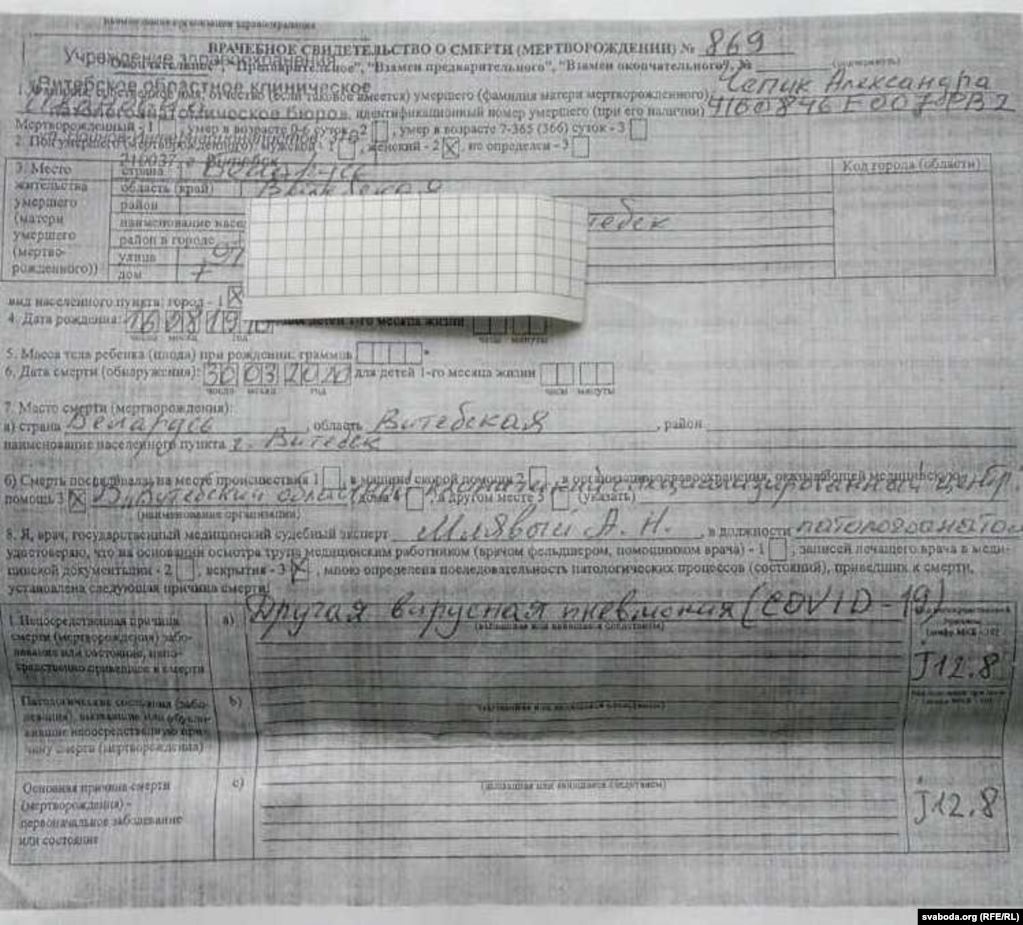 ВРАЧЕБНОЕ СВИДЕТЕЛЬСТВО О СМЕРТИ (МЕРТВОРОЖДЕНИИ) № 869
Учреждение здравоохранения
"Взамен предварительного", "Взамен окончательного", №
Витебское областное клиническое
отчество (если таковое имеется) умершего (фамилия матери мертворожденного) Чепик Александра
патологоанатомическое бюро идентификационный номер умершего (при его наличии) 4160846E007PB2
Мертворожденный - 1 , умер в возрасте 0-6 суток - 2 , умер в возрасте 7-365 (366) суток - 3
2. Пол умершего (мертворожденного): мужской - 1 , женский - 2 X , не определен - 3
210037, г. Витебск
3. Место жительства умершего (матери умершего (мертворожденного))
страна Беларусь
Код города (области)
область (край)
район
наименование насе тебек
район в городе
улица
дом 7
вид населенного пункта: город - 1 X
4. Дата рождения: 16 08 19 детей 1-го месяца жизни
число месяц год часы минуты
5. Масса тела ребенка (плода) при рождении: граммов
6. Дата смерти (обнаружения): 30 03 2020 для детей 1-го месяца жизни
число месяц год часы минуты
7. Место смерти (мертворождения):
а) страна Беларусь , область Витебская , район
наименование населенного пункта г. Витебск
б) Смерть последовала: на месте происшествия 1 , в машине скорой помощи 2 , в организации здравоохранения, оказывающей медицинскую
помощь 3 X Витебский специализированный центр , дома 4 , в другом месте 5 (указать)
(наименование организации)
8. Я, врач, государственный медицинский судебный эксперт Млявый А. Н. , в должности патологоанатом
удостоверяю, что на основании осмотра трупа медицинским работником (врачом фельдшером, помощником врача) - 1 , записей лечащего врача в меди-
цинской документации - 2 , вскрытия - 3 X , мною определена последовательность патологических процессов (состояний), приведших к смерти,
установлена следующая причина смерти:
I. Непосредственная причина смерти (мертворождения) заболевание или состояние, непосредственно приведшее к смерти
а) Другая вирусная пневмония (COVID-19)
(вызвавшая или явившаяся следствием)
J12.8
Патологические состояния (заболевания), вызвавшие или обусловившие непосредственную причину смерти (мертворождения)
b)
(вызвавшая или явившаяся следствием)
Основная причина смерти (мертворождения) - первоначальное заболевание или состояние
c)
(вызвавшая или явившаяся следствием)
J12.8
svaboda.org (RFE/RL)